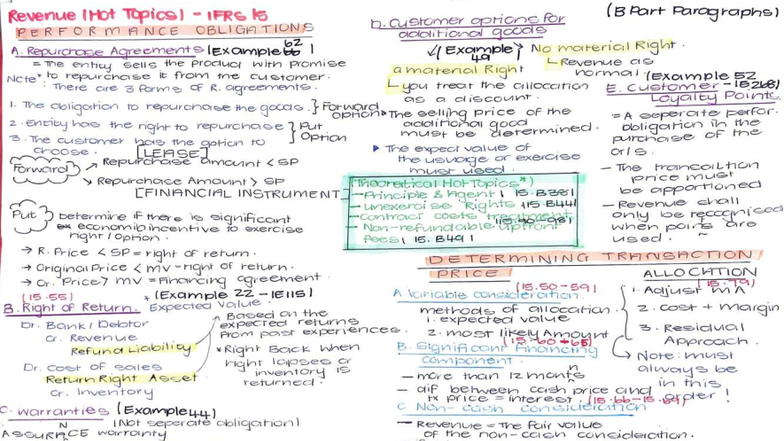 Revenue (Hot Topics) - IFRS 15
PERFORMANCE OBLIGATIONS
A. Repurchase Agreements (Example 62)
= The entity sells the product with promise
to repurchase it from the customer.
Note* There are 3 forms of R. agreements.
1. The obligation to repurchase the goods. } Forward
option
2. Entity has the right to repurchase } Put
3. The customer has the option to Option
choose.
[LEASE]
Forward → Repurchase amount < SP
→ Repurchase Amount > SP
[FINANCIAL INSTRUMENT]
Put Determine if there is significant
economic incentive to exercise
right / option.
→ R. Price < SP = right of return.
→ Original Price < mv - right of return.
→ Or. Price > mv = Financing agreement.
(15.55) * (Example 22 - IE115)
B. Right of Return. Expected Value.
Dr. Bank / Debtor
Cr. Revenue
Refund Liability
Dr. cost of sales
Return Right Asset
Cr. Inventory
→ Based on the
expected returns
from past experiences.
*Right Back when
right lapses or
inventory is
returned.
C. Warranties (Example 44)
(Not separate obligation)
ASSURANCE warranty
(B Part Paragraphs)
D. Customer options for
additional goods
(Example 49)
No material Right.
↳ Revenue as
normal.
a material Right
↳ you treat the allocation
as a discount.
▸ The selling price of the
additional good
must be determined.
▸ The expect value of
the usuage or exercise
must used.
(Example 52
- IE268)
E. Customer
Loyalty Points.
= A seperate perfor.
obligation in the
purchase of the
g/s.
- The transcaition
price must
be apportioned
- Revenue shall
only be recognised
when points are
used.
(Theoretical Hot Topics *)
- Principle & Agent ( 15.B38)
- Unexercise Rights (15.B44)
- contract costs treatment
(15.90-98)
- Non-refundable upfront
fees ( 15.B49)
DETERMINING TRANSACTION
PRICE
(15.50-59)
A Variable consideration.
methods of allocation.
1. expected value
2. most likely Amount
(15.60-65)
B. Significant Financing
component.
- more than 12 months
- dif between cash price and
tx price = interest.
(15.66-15.69)
C Non-cash consideration
- Revenue = the fair value
of the non-cash consideration.
ALLOCATION
(15.79)
1. Adjust m/A
2. cost + Margin
3. Residual
Approach.
→ Note: must
always be
in this
order!